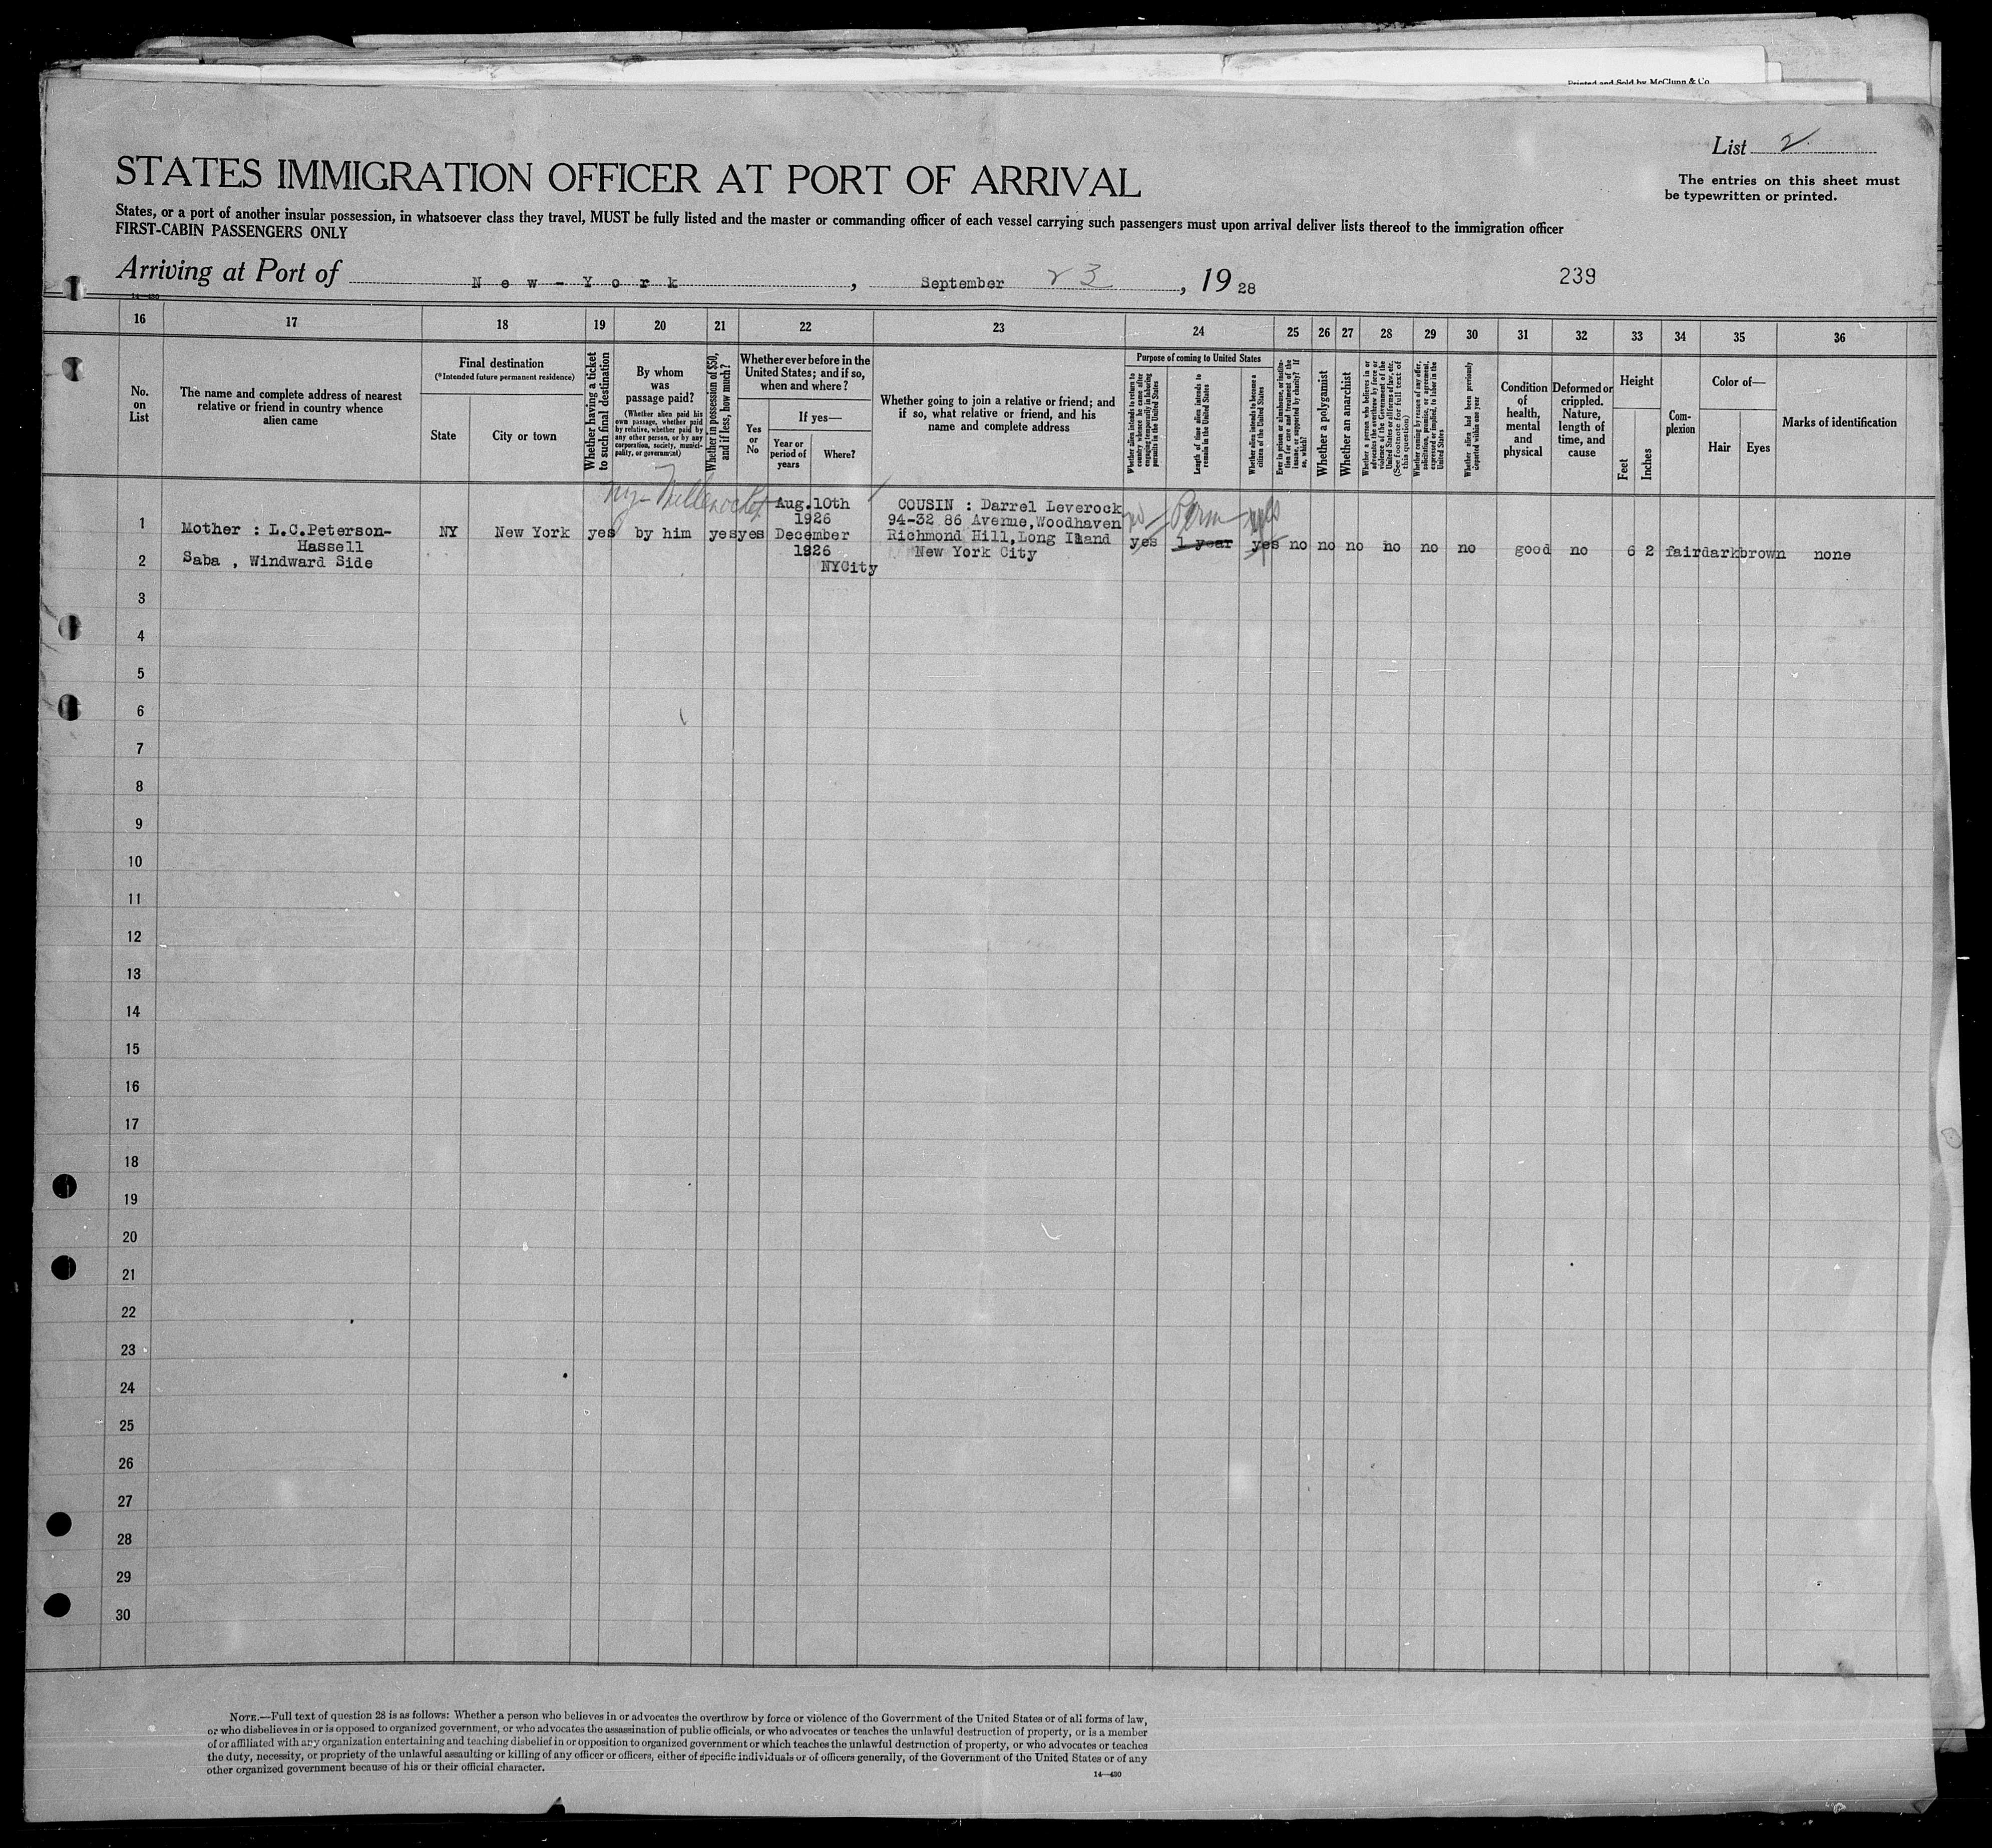 Printed and Sold by McClunn & Co.
List 2
The entries on this sheet must
be typewritten or printed.
STATES IMMIGRATION OFFICER AT PORT OF ARRIVAL
States, or a port of another insular possession, in whatsoever class they travel, MUST be fully listed and the master or commanding officer of each vessel carrying such passengers must upon arrival deliver lists thereof to the immigration officer
FIRST-CABIN PASSENGERS ONLY
Arriving at Port of New-York, September 23, 1928
239
14-430
16 17 18 19 20 21 22 23 24 25 26 27 28 29 30 31 32 33 34 35 36
No.
on
List
The name and complete address of nearest
relative or friend in country whence
alien came
Final destination
(*Intended future permanent residence)
State
City or town
Whether having a ticket
to such final destination
By whom
was
passage paid?
(Whether alien paid his
own passage, whether paid
by relative, whether paid by
any other person, or by any
corporation, society, munici-
pality, or government)
Whether in possession of $50,
and if less, how much?
Whether ever before in the
United States; and if so,
when and where?
Yes
or
No
If yes—
Year or
period of
years
Where?
Whether going to join a relative or friend; and
if so, what relative or friend, and his
name and complete address
Purpose of coming to United States
Whether alien intends to return to
country whence he came after
engaging temporarily in laboring
pursuits in the United States
Length of time alien intends to
remain in the United States
Whether alien intends to become a
citizen of the United States
Ever in prison or almshouse, or institu-
tion for care and treatment of the
insane, or supported by charity? If
so, which?
Whether a polygamist
Whether an anarchist
Whether a person who believes in or
advocates the overthrow by force or
violence of the Government of the
United States or all forms of law, etc.
(See footnote for full text of
this question)
Whether coming by reason of any offer,
solicitation, promise, or agreement,
expressed or implied, to labor in the
United States
Whether alien had been previously
deported within one year
Condition
of
health,
mental
and
physical
Deformed or
crippled.
Nature,
length of
time, and
cause
Height
Feet
Inches
Com-
plexion
Color of—
Hair
Eyes
Marks of identification
1 Mother : L.C.Peterson-
Hassell
Saba , Windward Side
NY New York yes by him yes yes
Aug.10th
1926
December
1826
NYCity
COUSIN : Darrel Leverock
94-32 86 Avenue,Woodhaven
Richmond Hill,Long Iland
New York City
no Perm yes
yes 1 year yes no no no no no no good no 6 2 fair dark brown none
2
3
4
5
6
7
8
9
10
11
12
13
14
15
16
17
18
19
20
21
22
23
24
25
26
27
28
29
30
NOTE.—Full text of question 28 is as follows: Whether a person who believes in or advocates the overthrow by force or violence of the Government of the United States or of all forms of law,
or who disbelieves in or is opposed to organized government, or who advocates the assassination of public officials, or who advocates or teaches the unlawful destruction of property, or is a member
of or affiliated with any organization entertaining and teaching disbelief in or opposition to organized government or which teaches the unlawful destruction of property, or who advocates or teaches
the duty, necessity, or propriety of the unlawful assaulting or killing of any officer or officers, either of specific individuals or of officers generally, of the Government of the United States or of any
other organized government because of his or their official character.
14-430